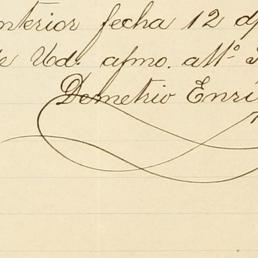 nterior fecha 12 d
e Ud. afmo. attº
Demetrio Enri